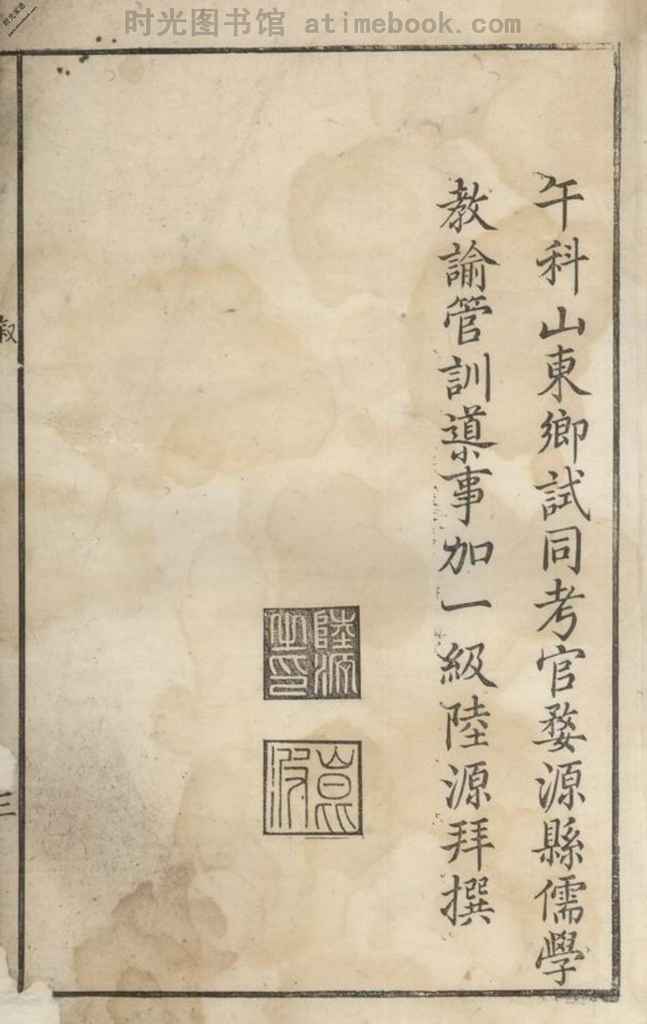 时光图书馆 atimebook.com
午科山東鄉試同考官婺源縣儒學
教諭管訓導事加一級陸源拜撰
陸源
之印
三